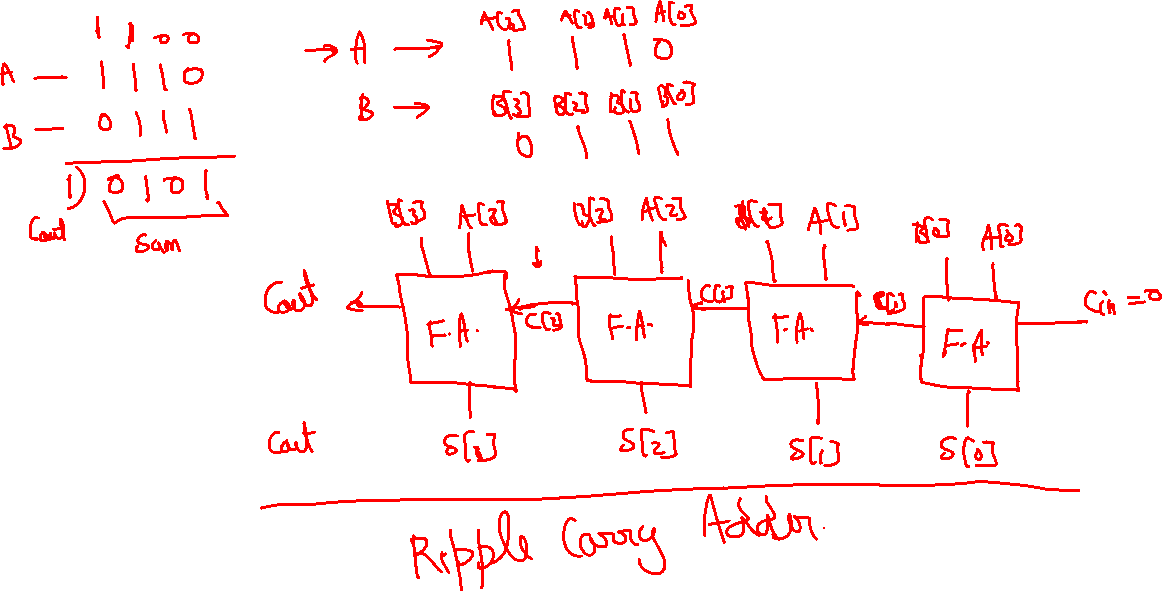 1 1 0 0
A — 1 1 1 0
B — 0 1 1 1
1) 0 1 0 1
Cout Sum
→ A → A[3] A[2] A[1] A[0]
1 1 1 0
B → B[3] B[2] B[1] B[0]
0 1 1 1
B[3] A[3] B[2] A[2] A[1] B[0] A[0]
Cout F.A. C[3] F.A. F.A. F.A. Cin = 0
Cout S[3] S[2] S[1] S[0]
Ripple Carry Adder.